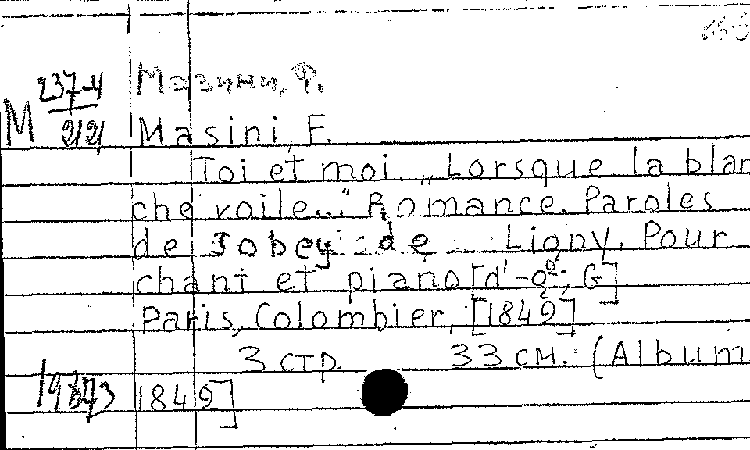 Мазини, Ф.
М 237-4
212
Masini, F.
Toi et moi. „Lorsque la blan
che voile..." Romance. Paroles
de Jobey de Ligny. Pour
chant et piano [d'-g²; G]
Paris, Colombier, [1849]
3 стр. 33 см. (Album
1849]